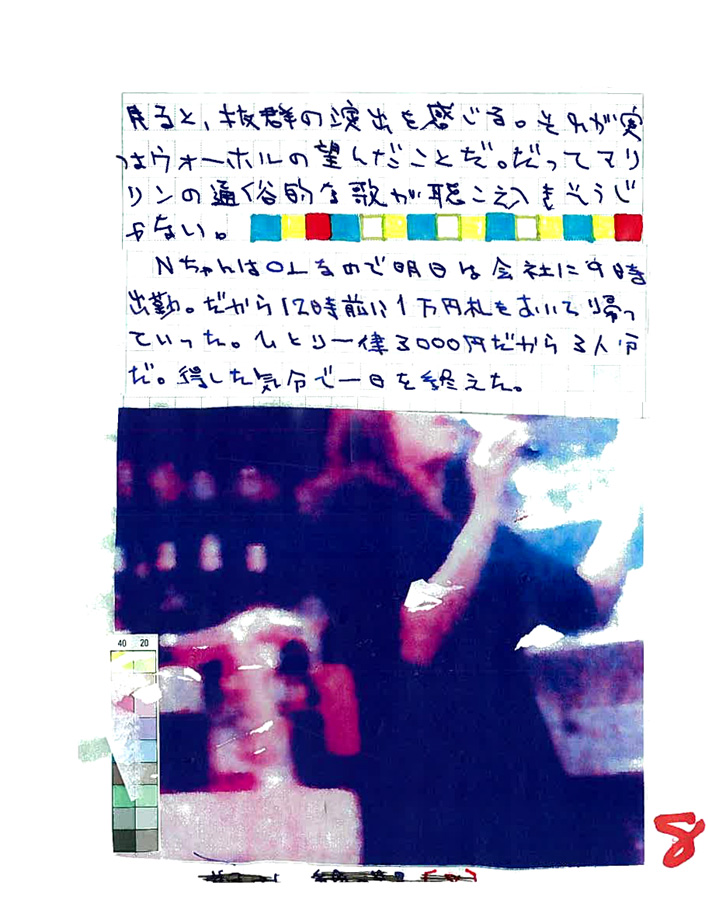 見ると、抜群の演出を感じる。それが実
はウォーホルの望んだことだ。だってマリ
リンの通俗的な歌が聴こえてきそうじ
ゃない。
Nちゃんは OLなので明日は会社に9時
出勤。だから12時前に1万円札をおいて帰っ
ていった。ひとり一律3000円だから3人分
だ。得した気分で一日を終えた。
40 20
8